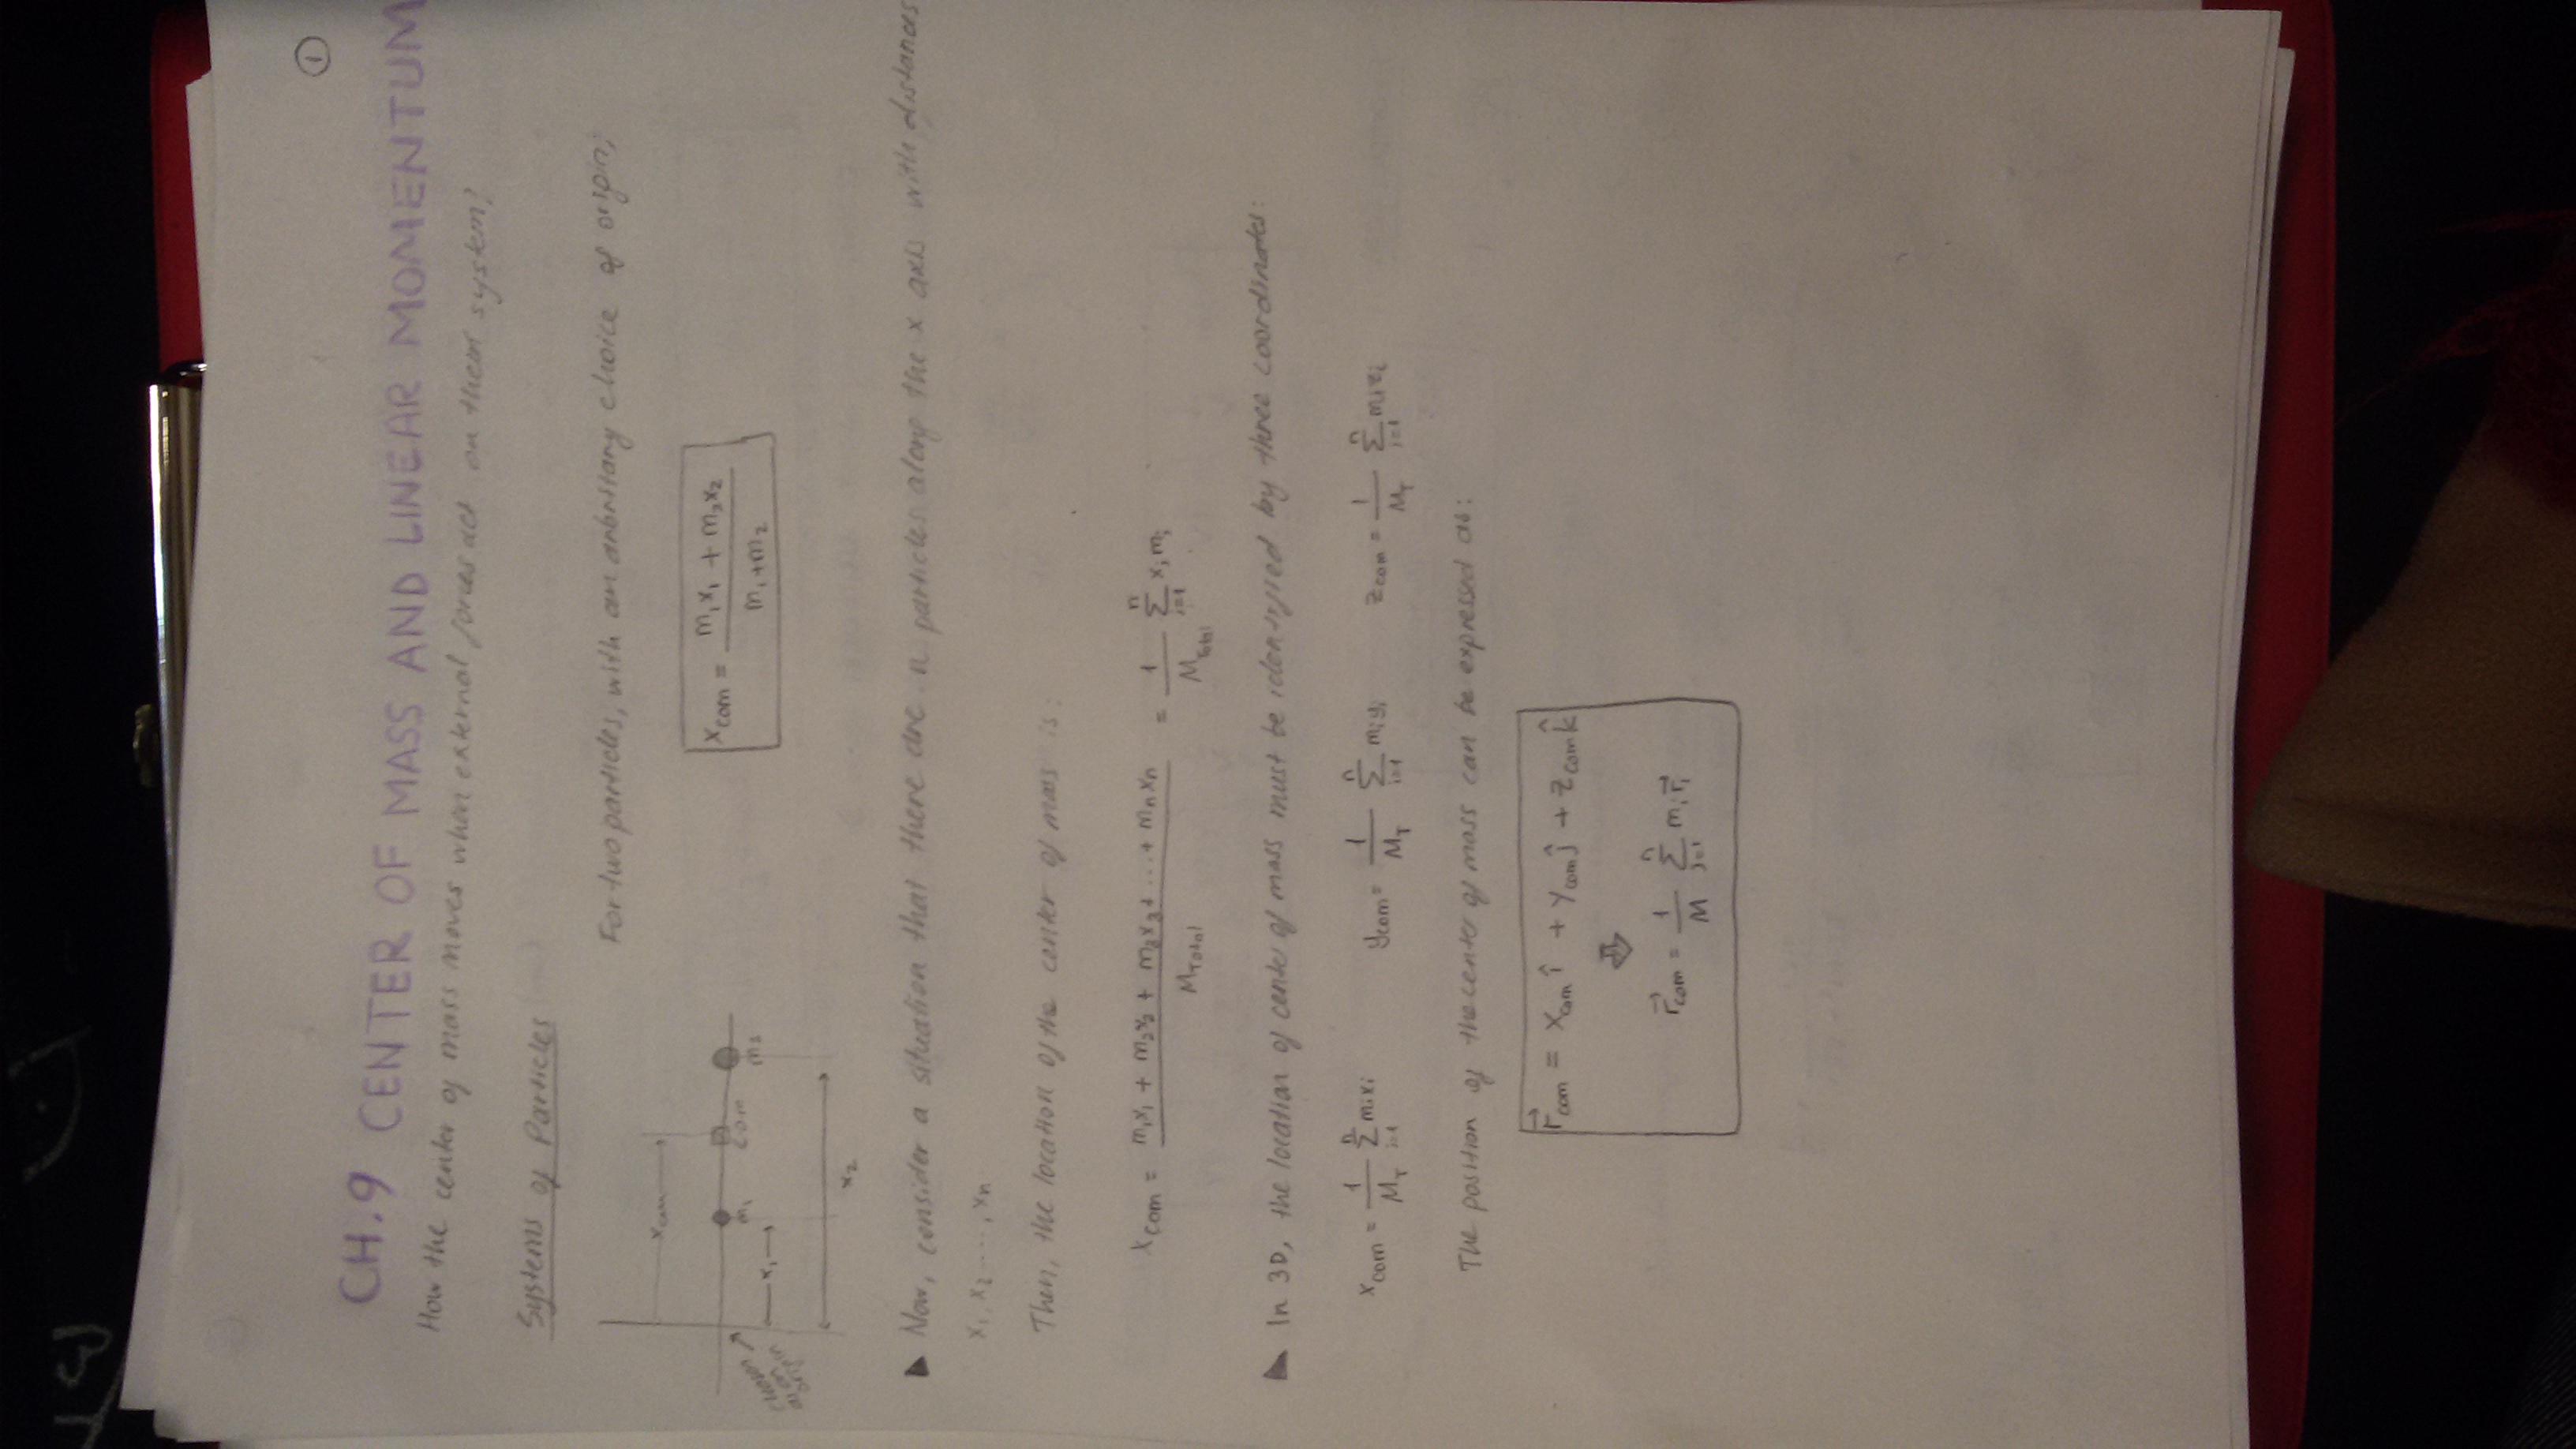 ①
CH.9 CENTER OF MASS AND LINEAR MOMENTUM
How the center of mass moves when external forces act on their system?
Systems of Particles
For two particles, with an arbritary choice of origin;
xcom
m₁ com m₂
chosen as an origin
x₁
x₂
xcom = (m₁x₁ + m₂x₂) / (m₁+m₂)
Now, consider a situation that there are n particles along the x axis with distances
x₁, x₂ ...., xn
Then, the location of the center of mass is:
xcom = (m₁x₁ + m₂x₂ + m₃x₃ + ... + mnxn) / MTotal = 1/MTotal Σ(i=1 to n) xᵢmᵢ
In 3D, the location of center of mass must be identified by three coordinates:
xcom = 1/MT Σ(i=1 to n) mᵢxᵢ ycom = 1/MT Σ(i=1 to n) mᵢyᵢ zcom = 1/MT Σ(i=1 to n) mᵢzᵢ
The position of the center of mass can be expressed as:
r⃗com = xcom î + ycom ĵ + zcom k̂
⇩
r⃗com = 1/M Σ(i=1 to n) mᵢr⃗ᵢ